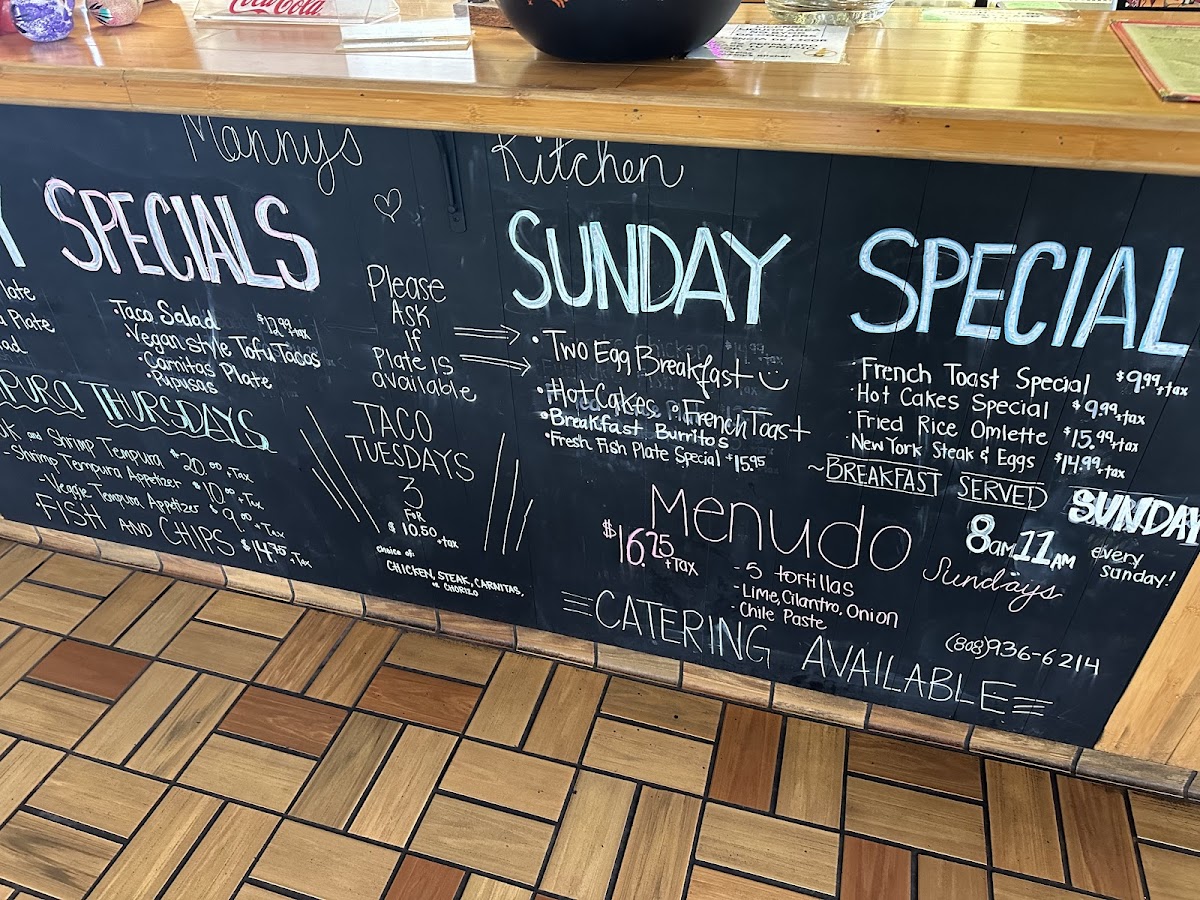 Coca-Cola
Mannys Kitchen
Y SPECIALS
Plate
Plate
Taco Salad $12.99+tax
Vegan style Tofu Tacos
Carnitas Plate
Pupusas
PURA THURSDAYS
and Shrimp Tempura $20.00+Tax
Shrimp Tempura Appetizer $10.00+Tax
Veggie Tempura Appetizer $9.00+Tax
FISH AND CHIPS $14.75+Tax
Please
ASK
If
Plate is
available
TACO
TUESDAYS
3
FOR
$10.50+tax
choice of:
CHICKEN, STEAK, CARNITAS,
or CHORIZO
SUNDAY SPECIAL
Two Egg Breakfast
Hot Cakes • French Toast
Breakfast Burritos
Fresh Fish Plate Special $15.95
French Toast Special $9.99+tax
Hot Cakes Special $9.99+tax
Fried Rice Omlette $15.99+tax
New York Steak & Eggs $14.99+tax
~BREAKFAST SERVED SUNDAY
8am 11AM every
Sunday!
Menudo Sundays
$16.25+Tax
- 5 tortillas
- Lime, Cilantro, Onion
- Chile Paste
CATERING AVAILABLE
(808)936-6214